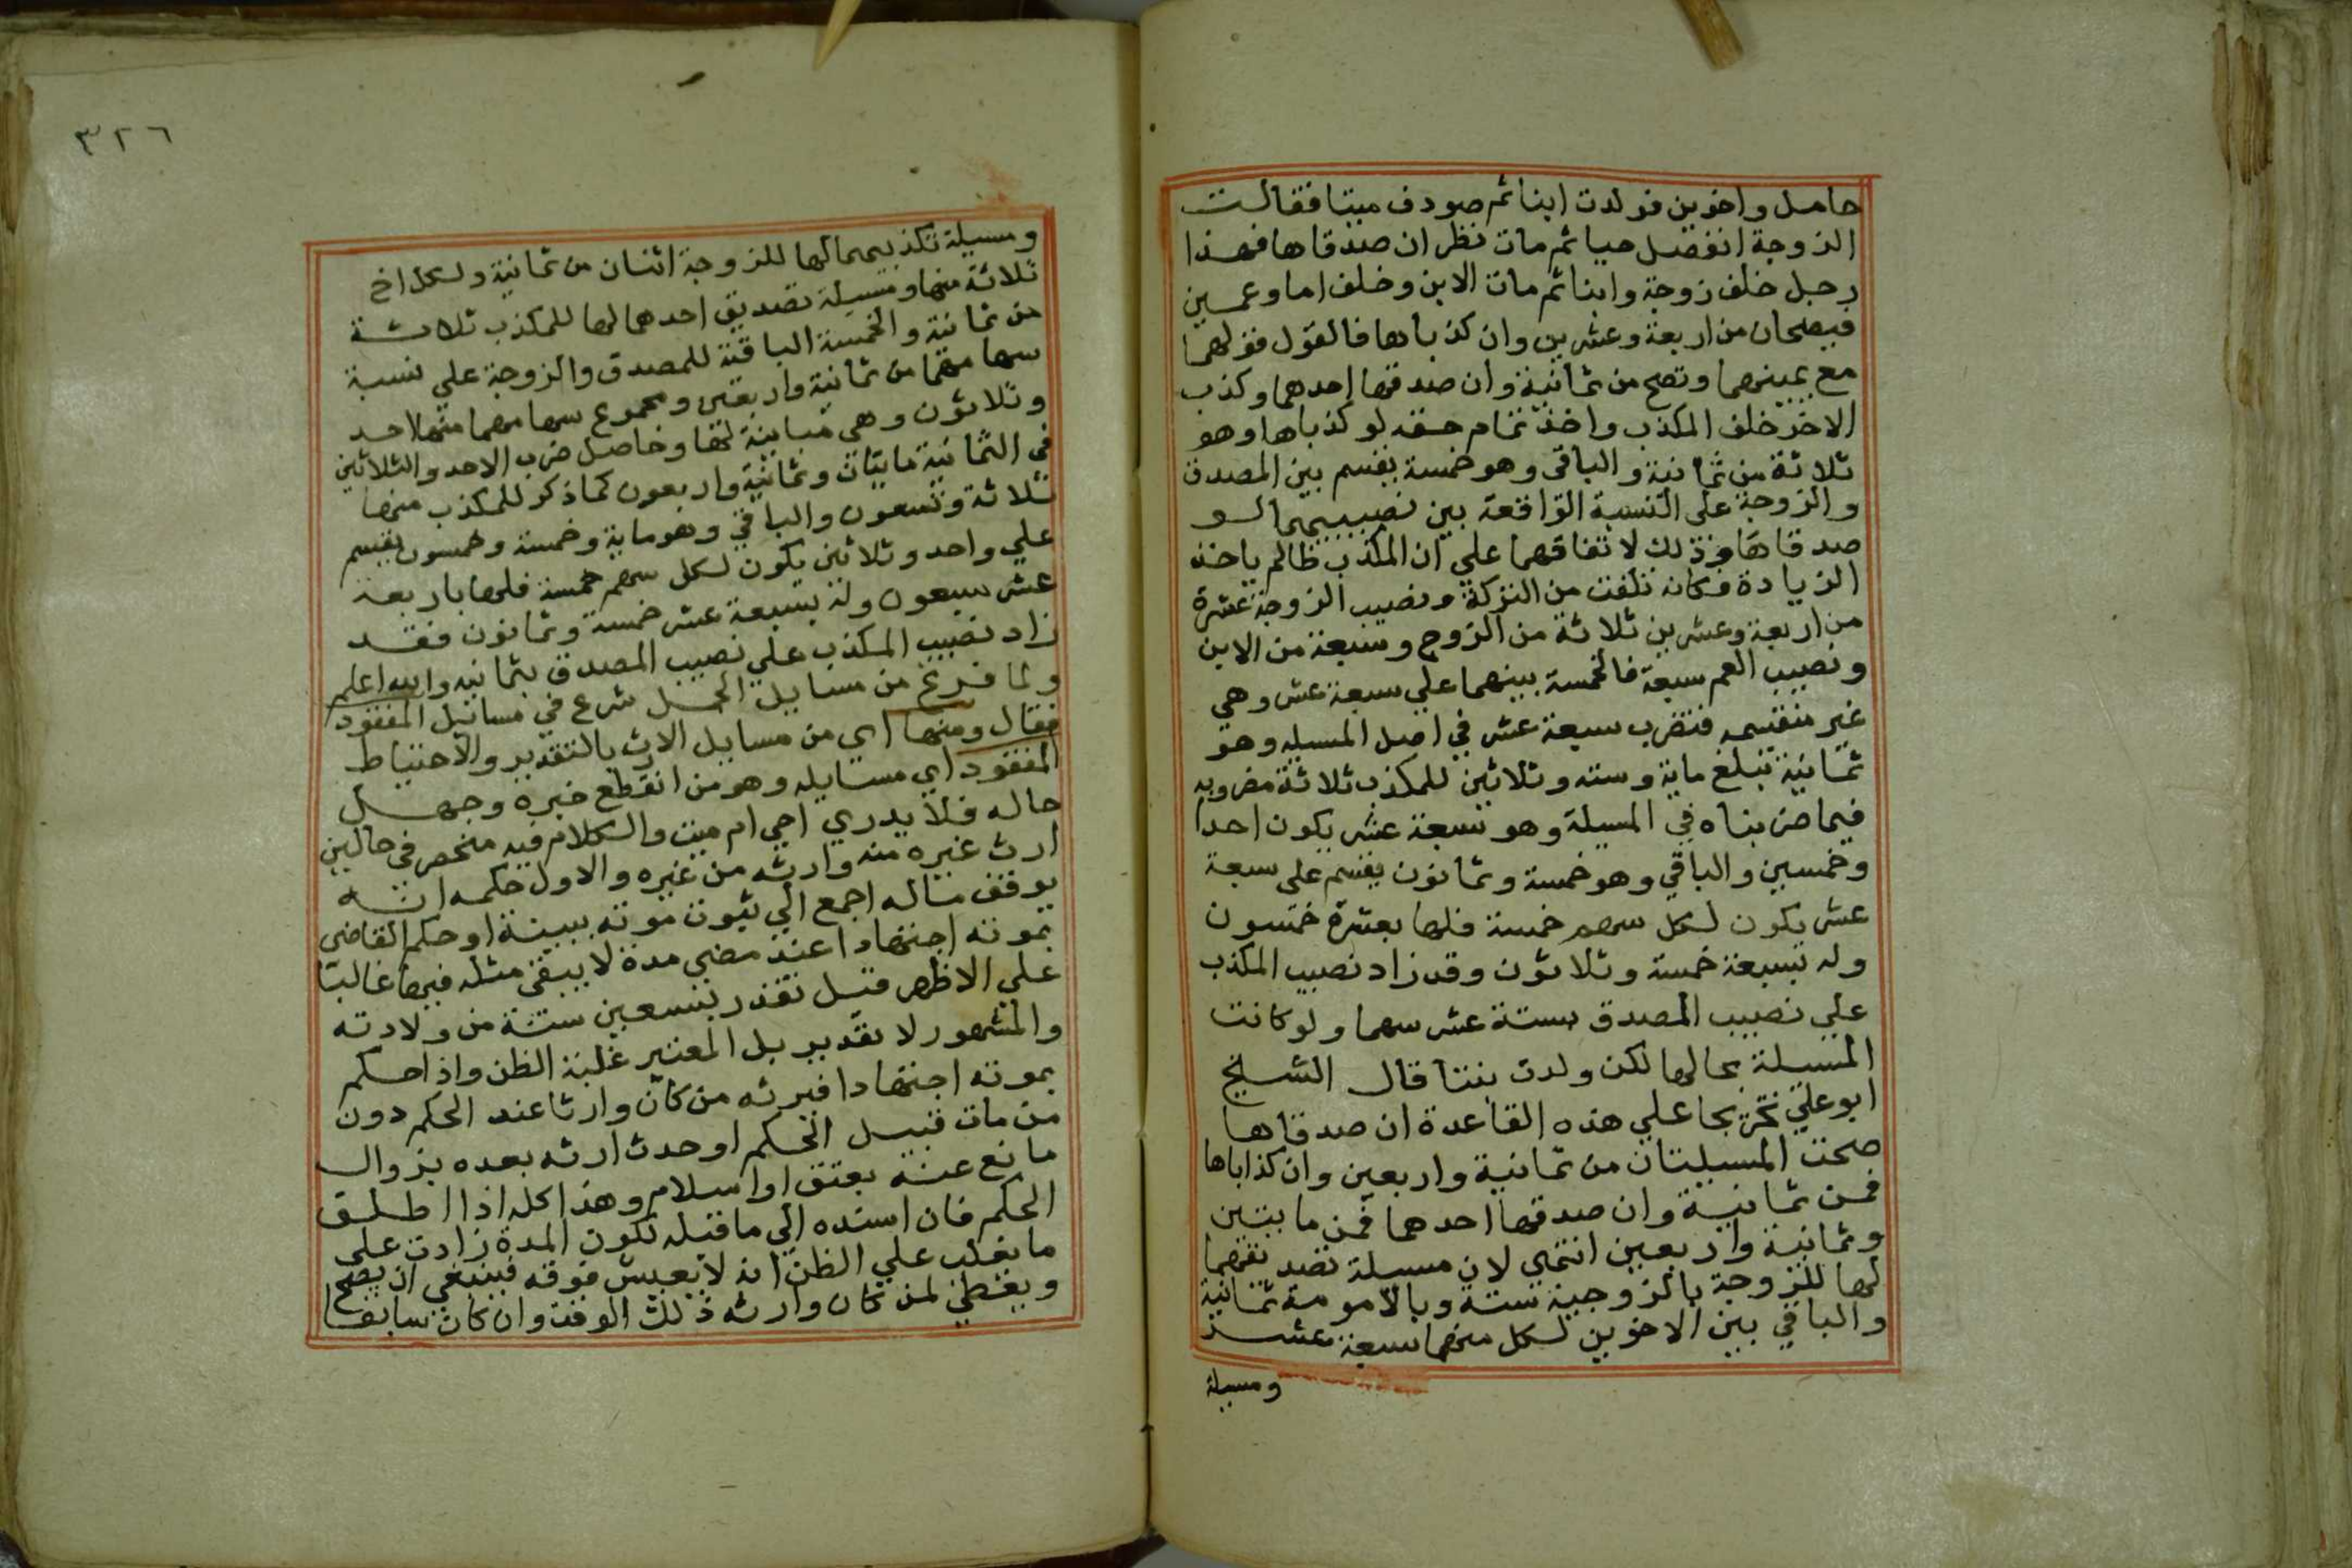 حامل واخوين فولدت ابنا ثم صودف ميتا فقالت
الزوجة انفصل حيا ثم مات نظر ان صدقاها فهذا
رجل خلف زوجة وابنا ثم مات الابن وخلف اما وعمين
فيصحان من اربعة وعشرين وان كذباها فالقول قولهما
مع يمينهما وتصح من ثمانية وان صدقها احدهما وكذب
الاخر خلف المكذب واخذ تمام حقه لو كذباها وهو
ثلاثة من ثمانية والباقي وهو خمسة يقسم بين المصدق
والزوجة على النسبة الواقعة بين نصيبيهما لو
صدقاها وذلك لاتفاقهما علي ان المكذب ظالم ياخذ
الزيادة فكانه تلفت من التركة ونصيب الزوجة عشرة
من اربعة وعشرين ثلاثة من الزوج وسبعة من الابن
ونصيب العم سبعة فالخمسة بينهما علي سبعة عشر وهي
غير منقسمه فتضرب سبعة عشر في اصل المسيله وهو
ثمانية تبلغ ماية وسته وثلاثين للمكذب ثلاثة مضروبه
فيما ضربناه في المسيلة وهو سبعة عشر يكون احدا
وخمسين والباقي وهو خمسة وثمانون يقسم على سبعة
عشر يكون لكل سهم خمسة فلها بعشرة خمسون
وله بسبعة خمسة وثلاثون وقد زاد نصيب المكذب
علي نصيب المصدق بستة عشر سهما ولو كانت
المسيلة بحالها لكن ولدت بنتا قال الشيخ
ابو علي تخريجا علي هذه القاعدة ان صدقاها
صحت المسيلتان من ثمانية واربعين وان كذاباها
فمن ثمانية وان صدقها احدهما فمن مايتين
وثمانية واربعين انتهي لان مسيلة تصديقهما
لها للزوجة بالزوجية ستة وبالامومة ثمانية
والباقي بين الاخوين لكل منهما سبعة عشر
ومسيلة
٣٢٦
ومسيلة تكذيبهما لها للزوجة اثنان من ثمانية ولكل اخ
ثلاثة منها ومسيلة تصديق احدهما لها للمكذب ثلاثة
من ثمانية والخمسة الباقية للمصدق والزوجة علي نسبة
سهامهما من ثمانية واربعين ومجموع سهامهما منها احد
وثلاثون وهي مباينة لها وحاصل ضرب الاحد والثلاثين
في الثمانية مايتان وثمانية واربعون كما ذكر للمكذب منها
ثلاثة وتسعون والباقي وهو ماية وخمسة وخمسون يقسم
علي واحد وثلاثين يكون لكل سهم خمسة فلها باربعة
عشر سبعون وله بسبعة عشر خمسة وثمانون فقد
زاد نصيب المكذب علي نصيب المصدق بثمانيه والله اعلم
ولما فرغ من مسايل الحمل شرع في مسائيل المفقود
فقال ومنها اي من مسايل الارث بالتقدير والاحتياط
المفقود اي مسايله وهو من انقطع خبره وجهل
حاله فلا يدري احي ام ميت والكلام فيه منحصر في حالين
ارث غيره منه وارثه من غيره والاول حكمه انه
يوقف ماله اجمع الي ثبوت موته ببينة او حكم القاضي
بموته اجتهادا عند مضي مدة لا يبقى مثله فيها غالبا
علي الاظهر قيل تقدر بتسعين سنة من ولادته
والمشهور لا تقدير بل المعتبر غلبة الظن واذا حكم
بموته اجتهادا فيرثه من كان وارثا عند الحكم دون
من مات قبيل الحكم او حدث ارثه بعده بزوال
مانع عنه بعتق او اسلام وهذا كله اذا اطلق
الحكم فان اسنده الي ما قبله لكون المدة زادت على
ما يغلب علي الظن انه لا يعيش فوقه فينبغي ان يصح
ويعطي لمن كان وارثه ذلك الوقت وان كان سابقا